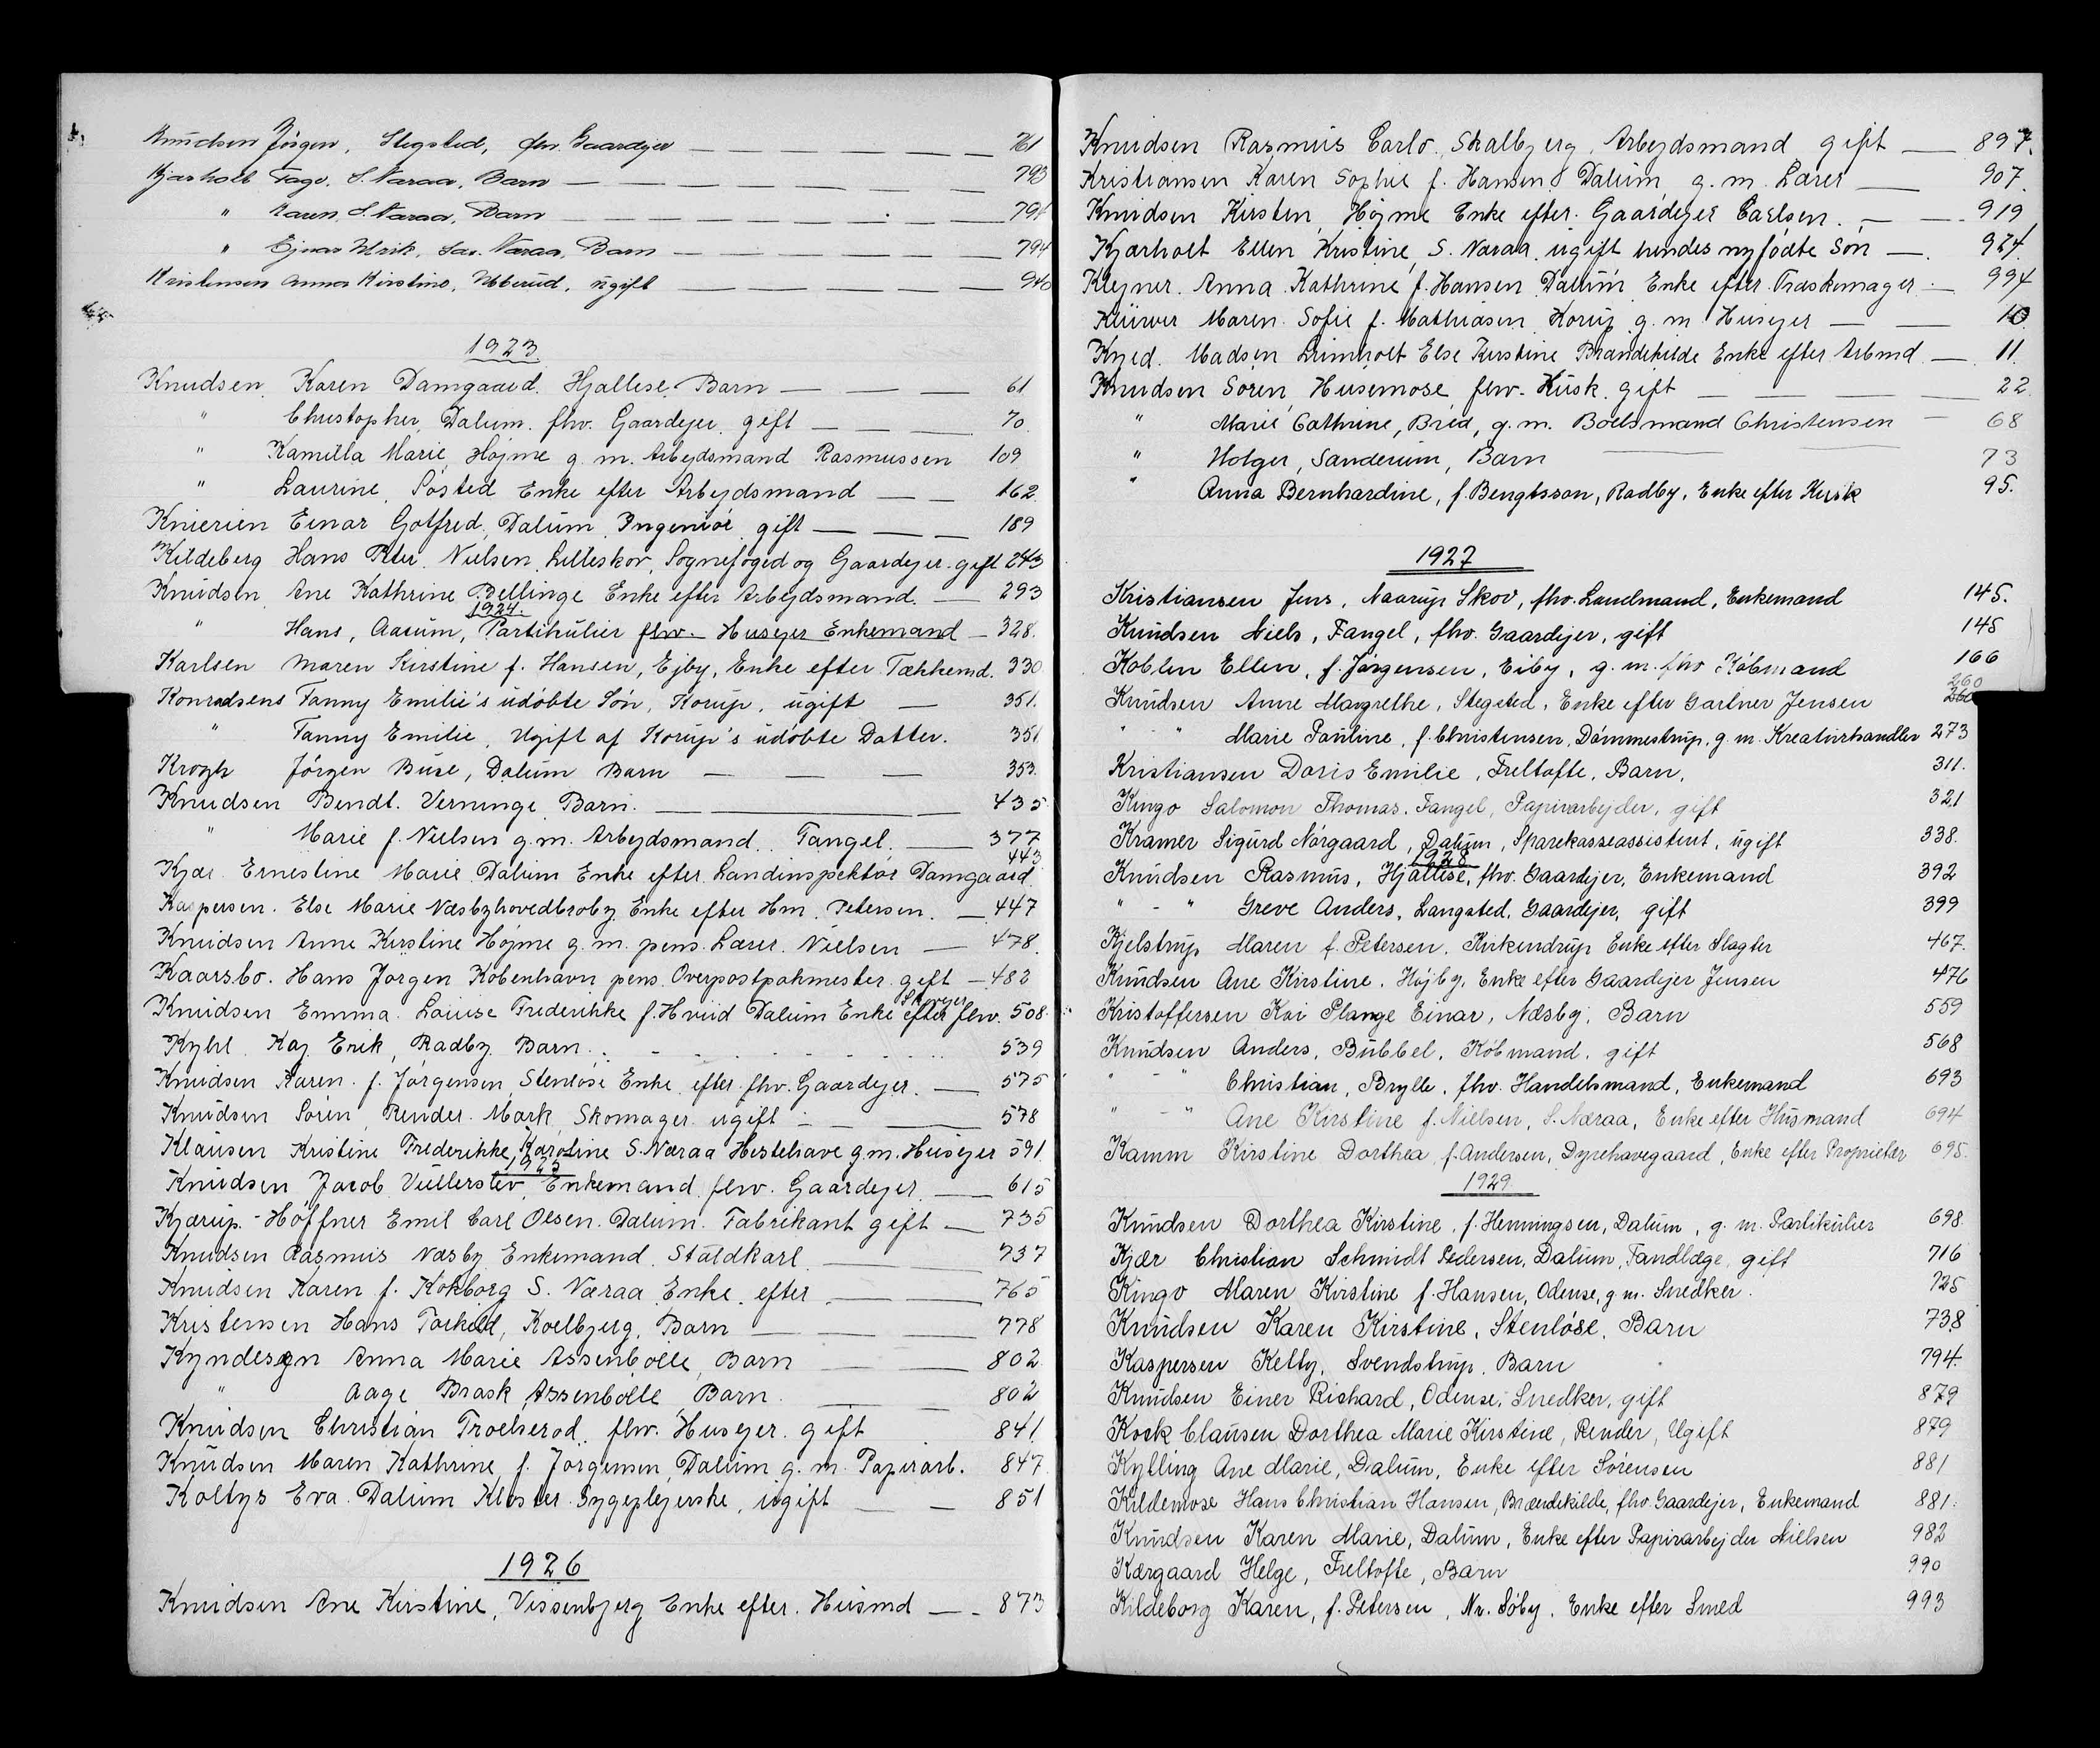 Knudsen Jörgen, Stegsted, fhv. Gaardejer 761
Kjærholt Tage, S. Naraa, Barn 793
" Karen S. Naraa, Barn 794
" Ejnar Ulrik, Sdr. Naraa, Barn 794
Kristensen Anna Kirstine, Ubberud, ugift 940
1923.
Knudsen, Karen Damgaard. Hjallese, Barn 61
" Christopher, Dalum. fhv. Gaardejer. gift 70
" Kamilla Marie, Højme g. m. Arbejdsmand Rasmussen 109
" Laurine, Søsted Enke efter Arbejdsmand 162
Knierien Einar Gotfred, Dalum, Ingeniør, gift 189
Kildeberg Hans Peter Nielsen, Lilleskov, Sognefoged og Gaardejer. gift 243
Knudsen, Ane Kathrine Bellinge Enke efter Arbejdsmand. 293
1924.
" Hans, Aasum, Partikulier fhv. Husejer Enkemand 328.
Karlsen Maren Kirstine f. Hansen, Ejby, Enke efter Tækkemd. 330
Konradsens Fanny Emilie's udöbte Sön, Korup, ugift 351.
" Fanny Emilie, Ugift af Korup's udöbte Datter. 351
Krogh Jörgen Buse, Dalum Barn 353.
Knudsen Bendt. Verninge Barn. 435
" Marie f. Nielsen g.m. Arbejdsmand. Fangel. 377
Kjær Ernestine Marie Dalum Enke efter Landinspektör Damgaard 443
Kaspersen. Else Marie Næsbyhovedbroby Enke efter Hm. Petersen. 447
Knudsen Anne Kirstine Højme g. m. pens. Lærer. Nielsen 478
Kaarsbo. Hans Jørgen København pens. Overpostpakmester gift 483
Knudsen Emma Louise Frederikke f. Hviid Dalum Enke efter fhv. Skovejer 508
Kyhl Kaj Erik, Radby Barn. 539
Knudsen Karen. f. Jørgensen, Stenløse Enke efter fhv. Gaardejer. 575
Knudsen Sören, Render Mark, Skomager ugift 578
Klausen Kristine Frederikke, Karoline S. Næraa Hestehave g.m. Husejer 591
1925
Knudsen, Jacob Vullerslev, Enkemand fhv. Gaardejer 615
Kjærup-Höffner Emil Carl Olsen. Dalum. Fabrikant gift 735
Knudsen Rasmus Næsby Enkemand. Staldkarl 737
Knudsen Karen f. Kokborg S. Næraa Enke efter 765
Kristensen Hans Torkild, Koelbjerg, Barn 778
Kyndesgn Anna Marie Assenbølle, Barn 802
" Aage Brask Assenbølle Barn 802
Knudsen Christian Troelserod, fhv. Husejer. gift 841
Knudsen Maren Kathrine f. Jørgensen, Dalum g. m. Papirarb. 847
Koltys Eva. Dalum Kloster Sygeplejerske, ugift 851
1926
Knudsen Ane Kirstine, Vissenbjerg Enke efter. Husmd 873
Knudsen Rasmus Carlo, Skalbjerg, Arbejdsmand gift 897.
Kristiansen Karen Sophie f. Hansen Dalum g. m. Lærer 907
Knudsen Kirsten, Højme Enke efter. Gaardejer Carlsen. 919
Kjærholt Ellen Kristine, S. Næraa ugift hendes nyfödte Sön 924
Klejner. Anna Kathrine f. Hansen Dalum Enke efter Træskomager 994
Klüwer Maren. Sofie f. Mathiasen Korup g. m. Husejer 10
Kyed. Madsen Lrimholt Else Kirstine Brændekilde Enke efter Arbmd 11.
Knudsen Sören, Husemose fhv. Kusk gift 22
" Marie Cathrine, Bred, g. m. Boelsmand Christensen 68
" Holger, Sanderum, Barn 73
" Anna Bernhardine, f. Bengtsson, Radby, Enke efter Kusk 95.
1927
Kristiansen Jens, Naarup Skov, fhv. Landmand, Enkemand 145.
Knudsen Niels, Fangel, fhv. Gaardejer, gift 145
Koblen Ellen, f. Jørgensen, Ejby, g. m. fhv Købmand 166
Knudsen Anne Margrethe, Stegsted, Enke efter Gartner Jensen 260
" - " Marie Pauline, f. Christensen, Dömmestrup, g. m. Kreaturhandler 273
Kristiansen Doris Emilie, Freltofte, Barn. 311.
Kingo Salomon Thomas, Fangel, Papirarbejder, gift 321
Kramer Sigurd Nørgaard, Dalum, Sparekasseassistent, ugift 338.
1928
Knudsen Rasmus, Hjallese, fhv. Gaardejer, Enkemand 392
" - " Greve Anders, Langsted, Gaardejer, gift 399
Kjelstrup Maren f. Petersen, Kirkendrup Enke efter Slagter 467.
Knudsen Ane Kirstine, Højby, Enke efter Gaardejer Jensen 476
Kristoffersen Kai Plange Einar, Næsby, Barn 559
Knudsen Anders, Bubbel, Købmand, gift 568
" - " Christian, Brylle, fhv. Handelsmand, Enkemand 693
" - " Ane Kirstine f. Nielsen, S. Næraa, Enke efter Husmand 694
Kamm Kirstine Dorthea f. Andersen, Dyrehavegaard, Enke efter Proprietær 695.
1929
Knudsen Dorthea Kirstine, f. Henningsen, Dalum, g. m. Partikulier 698
Kjær Christian Schmidt Pedersen, Dalum, Tandlæge, gift 716
Kingo Maren Kirstine f. Hansen, Odense, g. m. Snedker. 725
Knudsen Karen Kirstine, Stenløse, Barn 738
Kaspersen Ketty, Svendstrup, Barn 794.
Knudsen Einer Richard, Odense, Snedker, gift 879
Kock Clausen Dorthea Marie Kirstine, Render, Ugift 879
Kylling Ane Marie, Dalum, Enke efter Sørensen 881
Kildemose Hans Christian Hansen, Brændekilde, fhv. Gaardejer, Enkemand 881.
Knudsen Karen Marie, Dalum, Enke efter Papirarbejder Nielsen 982
Kærgaard Helge, Freltofte, Barn 990
Kildeborg Karen, f. Petersen, Nr. Søby, Enke efter Smed 993